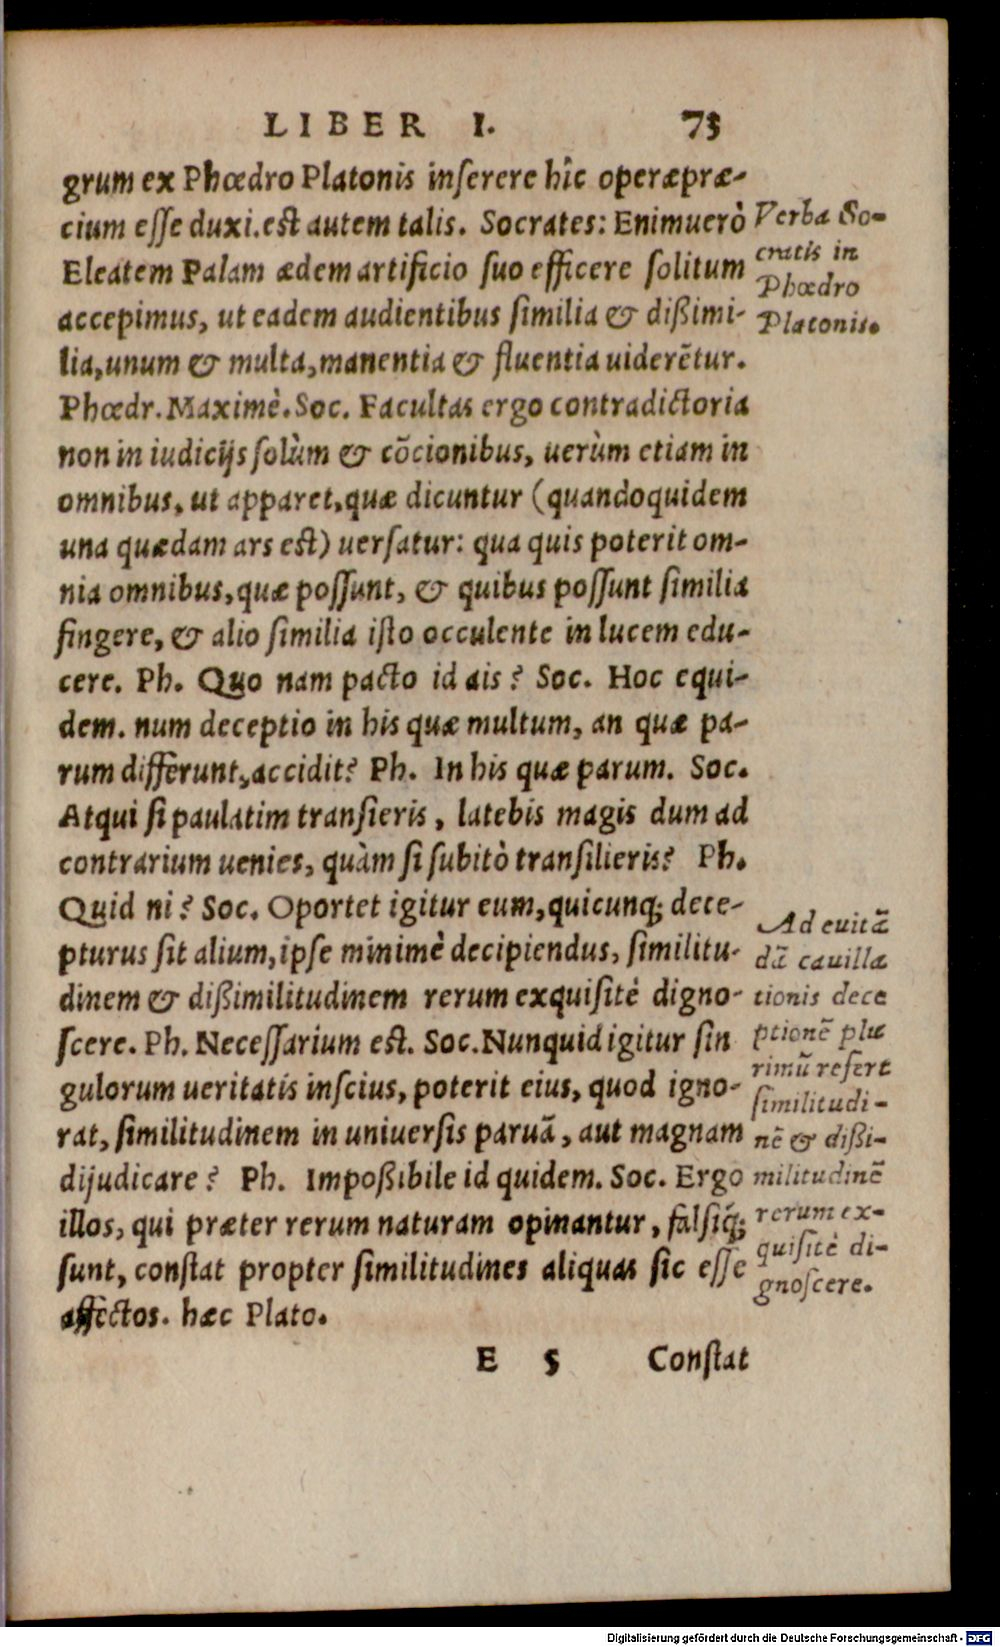 LIBER I. 73
grum ex Phœdro Platonis inſerere hîc operæpræ-
cium eſſe duxi. eſt autem talis. Socrates: Enimuerò
Eleatem Palam ædem artificio ſuo efficere ſolitum
accepimus, ut eadem audientibus ſimilia & dißimi-
lia, unum & multa, manentia & fluentia uiderẽtur.
Phœdr. Maximè. Soc. Facultas ergo contradictoria
non in iudicijs ſolùm & cõcionibus, uerùm etiam in
omnibus, ut apparet, quæ dicuntur (quandoquidem
una quædam ars eſt) uerſatur: qua quis poterit om-
nia omnibus, quæ poſſunt, & quibus poſſunt ſimilia
fingere, & alio ſimilia iſto occulente in lucem edu-
cere. Ph. Quo nam pacto id ais? Soc. Hoc equi-
dem. num deceptio in his quæ multum, an quæ pa-
rum differunt, accidit? Ph. In his quæ parum. Soc.
Atqui ſi paulatim tranſieris, latebis magis dum ad
contrarium uenies, quàm ſi ſubitò tranſilieris? Ph.
Quid ni? Soc. Oportet igitur eum, quicunq; dece-
pturus ſit alium, ipſe minimè decipiendus, ſimilitu-
dinem & dißimilitudinem rerum exquiſitè digno-
ſcere. Ph. Neceſſarium eſt. Soc. Nunquid igitur ſin
gulorum ueritatis inſcius, poterit eius, quod igno-
rat, ſimilitudinem in uniuerſis paruã, aut magnam
dijudicare? Ph. Impoßibile id quidem. Soc. Ergo
illos, qui præter rerum naturam opinantur, falſiq́;
ſunt, conſtat propter ſimilitudines aliquas ſic eſſe
affectos. hæc Plato.
E 5 Conſtat
Verba So-
cratis in
Phœdro
Platonis.
Ad euitã
dã cauillæ
tionis dece
ptionẽ plu
rimũ refert
ſimilitudi-
nẽ & dißi-
militudinẽ
rerum ex-
quiſitè di-
gnoſcere.
Digitalisierung gefördert durch die Deutsche Forschungsgemeinschaft - DFG